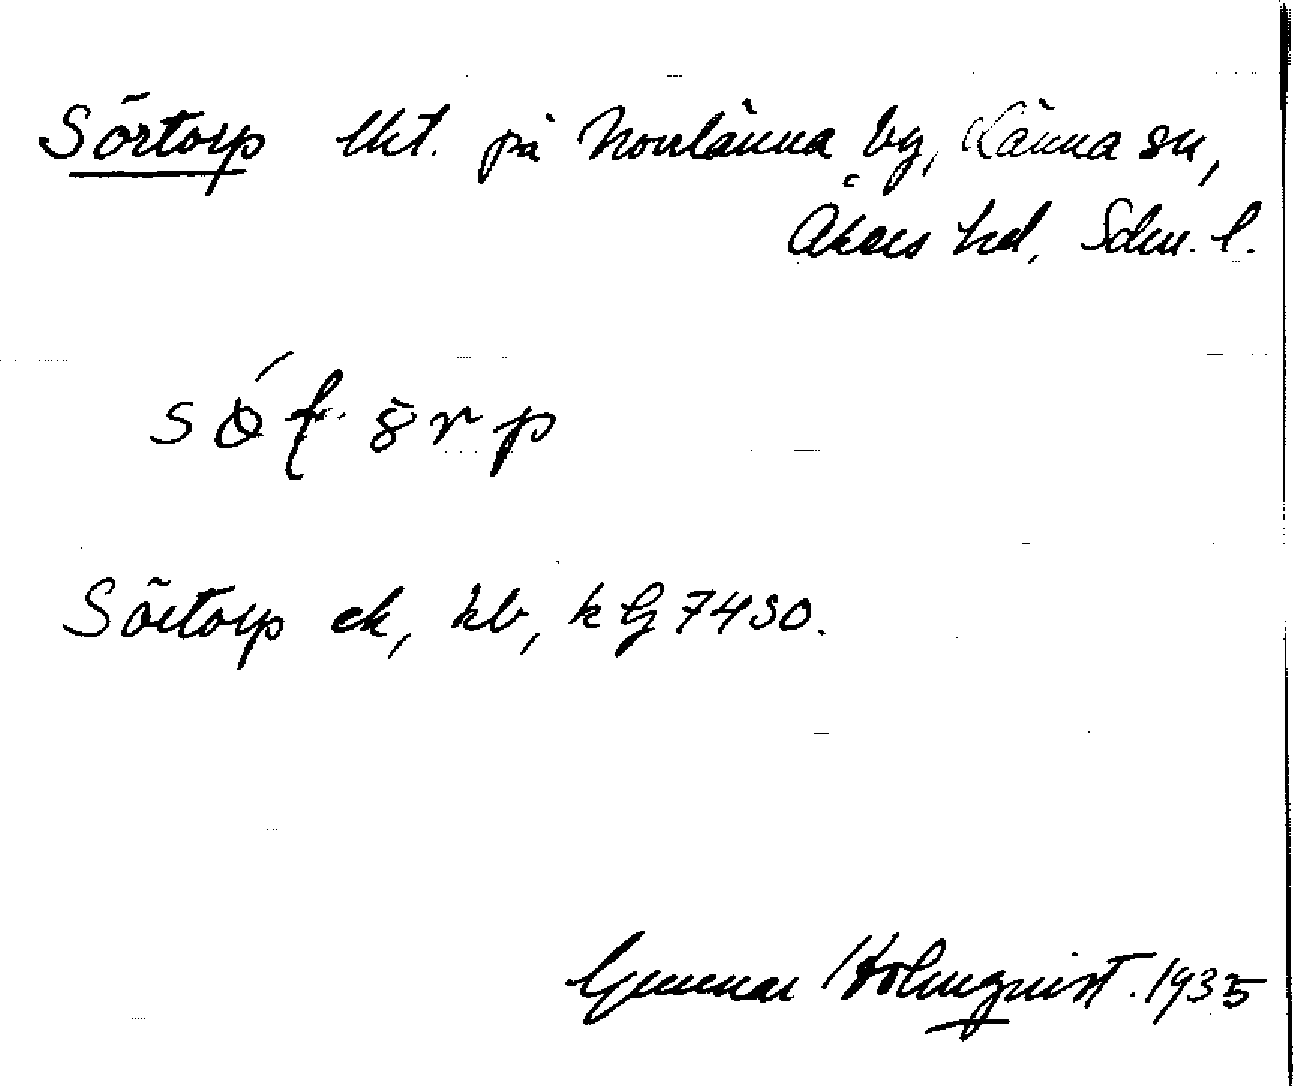 Sörtorp lht. på Norrlänna by, Länna sn,
Åkers hd, Sdm. l.
Sörtorp ek, kb, kG 7430.
Gunnar Holmquist. 1935